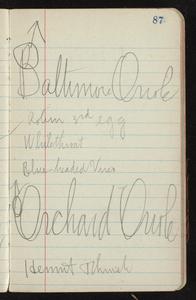 87
Baltimore Oriole
Robin 3rd egg
Whitethroat
Blue-headed Vireo
Orchard Oriole
Hermit Thrush